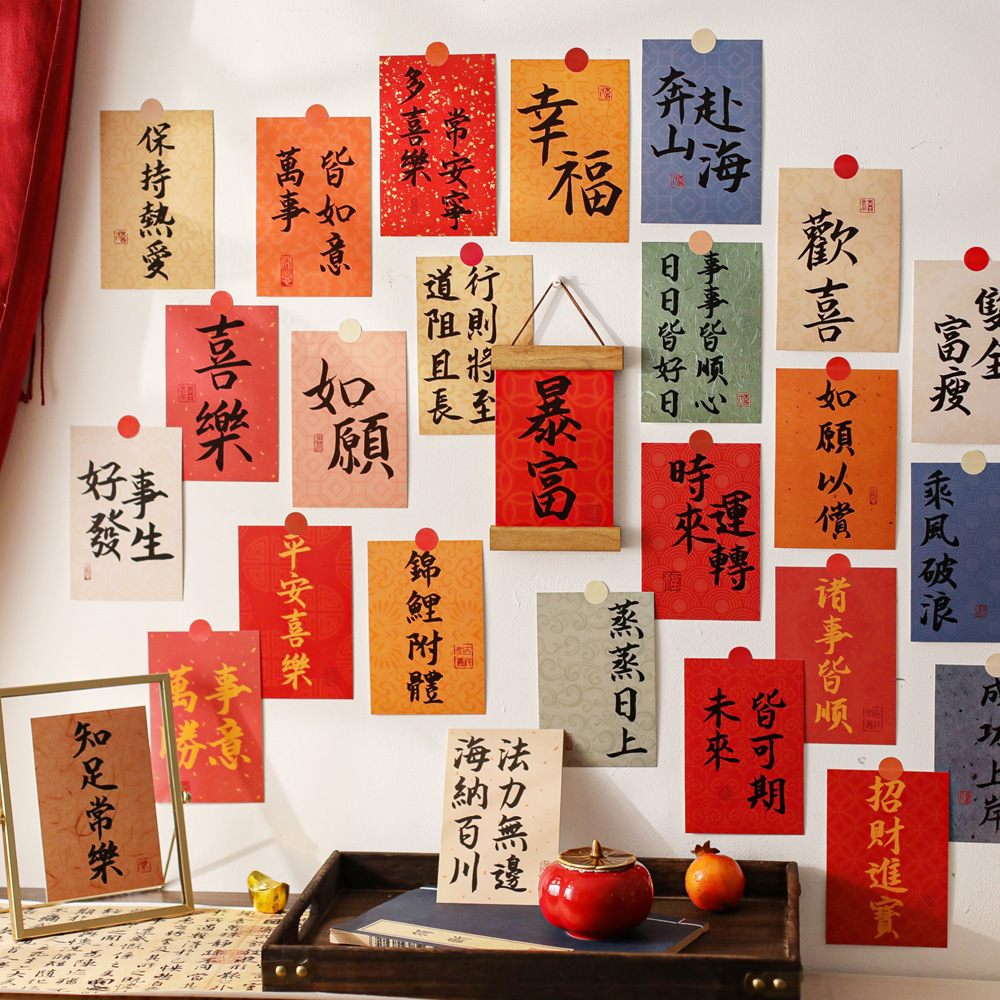 保持熱愛
萬事
皆如意
多喜樂
常安寧
幸福
奔山
赴海
歡喜
富瘦
雙全
喜樂
如願
道阻且長
行則將至
暴富
日日皆好日
事事皆順心
如願以償
乘風破浪
好事
發生
平安喜樂
錦鯉附體
時來
運轉
諸事皆順
蒸蒸日上
萬事
勝意
未來
皆可期
成功上岸
知足常樂
海納百川
法力無邊
招財進寶